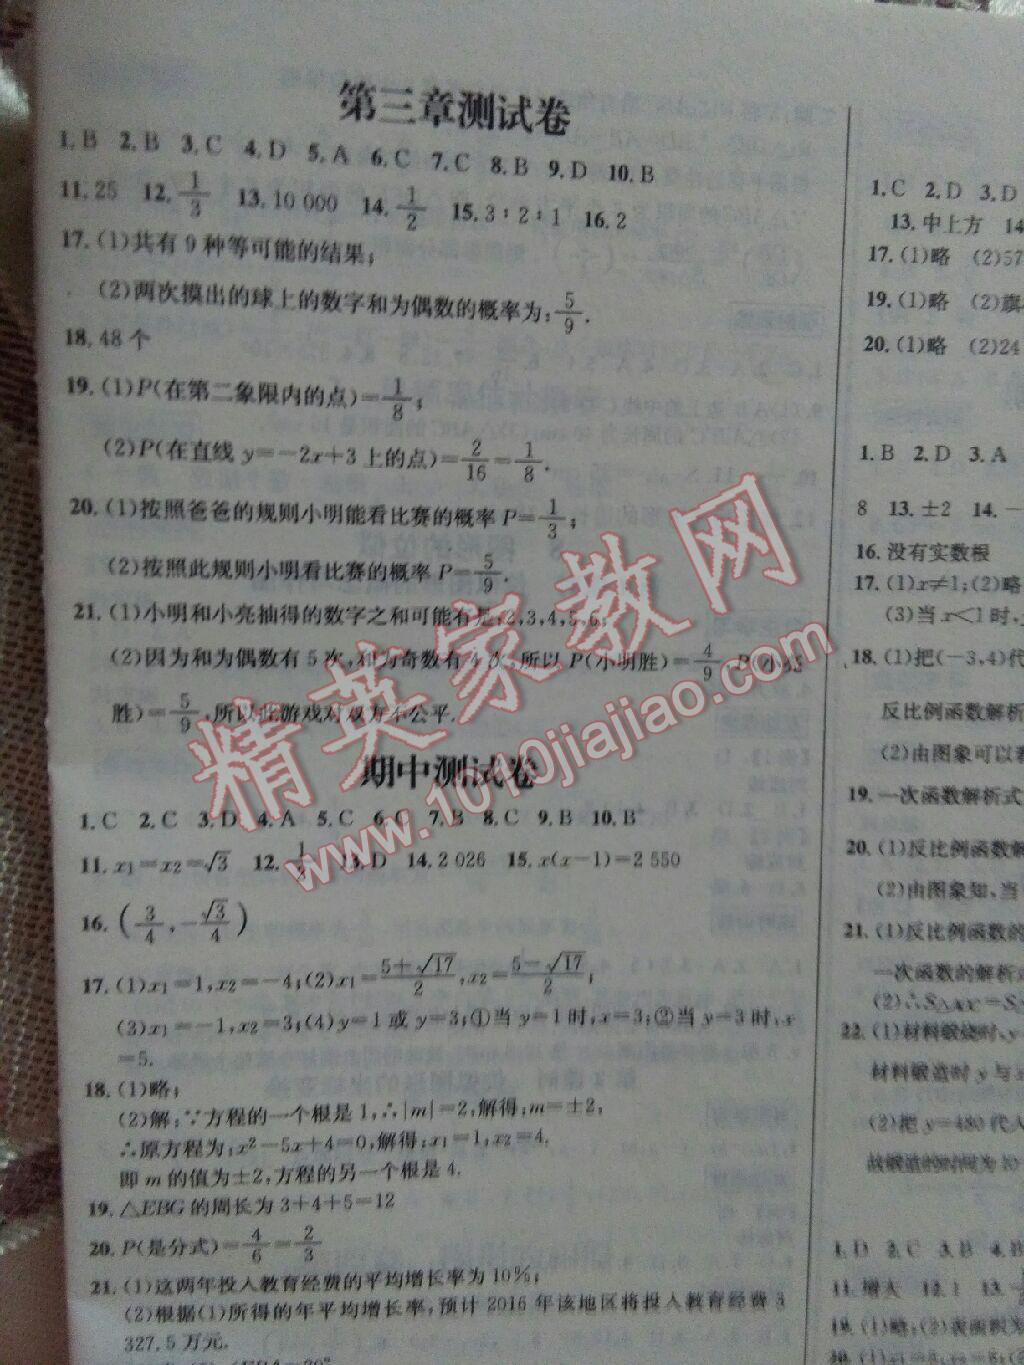 第三章测试卷
1.B 2.B 3.C 4.D 5.A 6.C 7.C 8.B 9.D 10.B
11.25 12.1/3 13.10 000 14.1/2 15.3∶2∶1 16.2
17.(1)共有9种等可能的结果;
(2)两次摸出的球上的数字和为偶数的概率为:5/9.
18.48个
19.(1)P(在第二象限内的点)=1/8;
(2)P(在直线y=-2x+3上的点)=2/16=1/8.
20.(1)按照爸爸的规则小明能看比赛的概率P=1/3;
(2)按照此规则小明看比赛的概率P=5/9.
21.(1)小明和小亮抽得的数字之和可能有是:2,3,4,5,6;
(2)因为和为偶数有5次,和为奇数有4次,所以P(小明胜)=4/9,P(小亮
胜)=5/9,所以此游戏对双方不公平.
期中测试卷
1.C 2.C 3.D 4.A 5.C 6.C 7.B 8.C 9.B 10.B
11.x1=x2=√3 12. 13.D 14.2 026 15.x(x-1)=2 550
16.(3/4,-√3/4)
17.(1)x1=1,x2=-4;(2)x1=(5+√17)/2,x2=(5-√17)/2;
(3)x1=-1,x2=3;(4)y=1或y=3;①当y=1时,x=3;②当y=3时,x
=5.
18.(1)略;
(2)解:∵方程的一个根是1,∴|m|=2,解得:m=±2,
∴原方程为:x²-5x+4=0,解得:x1=1,x2=4.
即m的值为±2,方程的另一个根是4.
19.△EBG的周长为3+4+5=12
20.P(是分式)=4/6=2/3
21.(1)这两年投入教育经费的平均增长率为10%;
(2)根据(1)所得的年平均增长率,预计2016年该地区将投入教育经费3
327.5万元.
1.C 2.D 3.D
13.中上方 14
17.(1)略 (2)57
19.(1)略 (2)旗
20.(1)略 (2)24
1.B 2.D 3.A
8 13.±2 14.-
16.没有实数根
17.(1)x≠1;(2)略
(3)当x<1时,
18.(1)把(-3,4)代
反比例函数解析
(2)由图象可以看
19.一次函数解析式
20.(1)反比例函数解
(2)由图象知,当
21.(1)反比例函数的
一次函数的解析式
(2)∴S
22.(1)材料锻烧时,y
材料锻造时y与x
(2)把y=480代入
故锻造的时间为10
1.D 2.C 3.B 4.B
11.增大 12.1 13.
18.(1)略;(2)表面积为
精英家教网
www.1010jiajiao.com